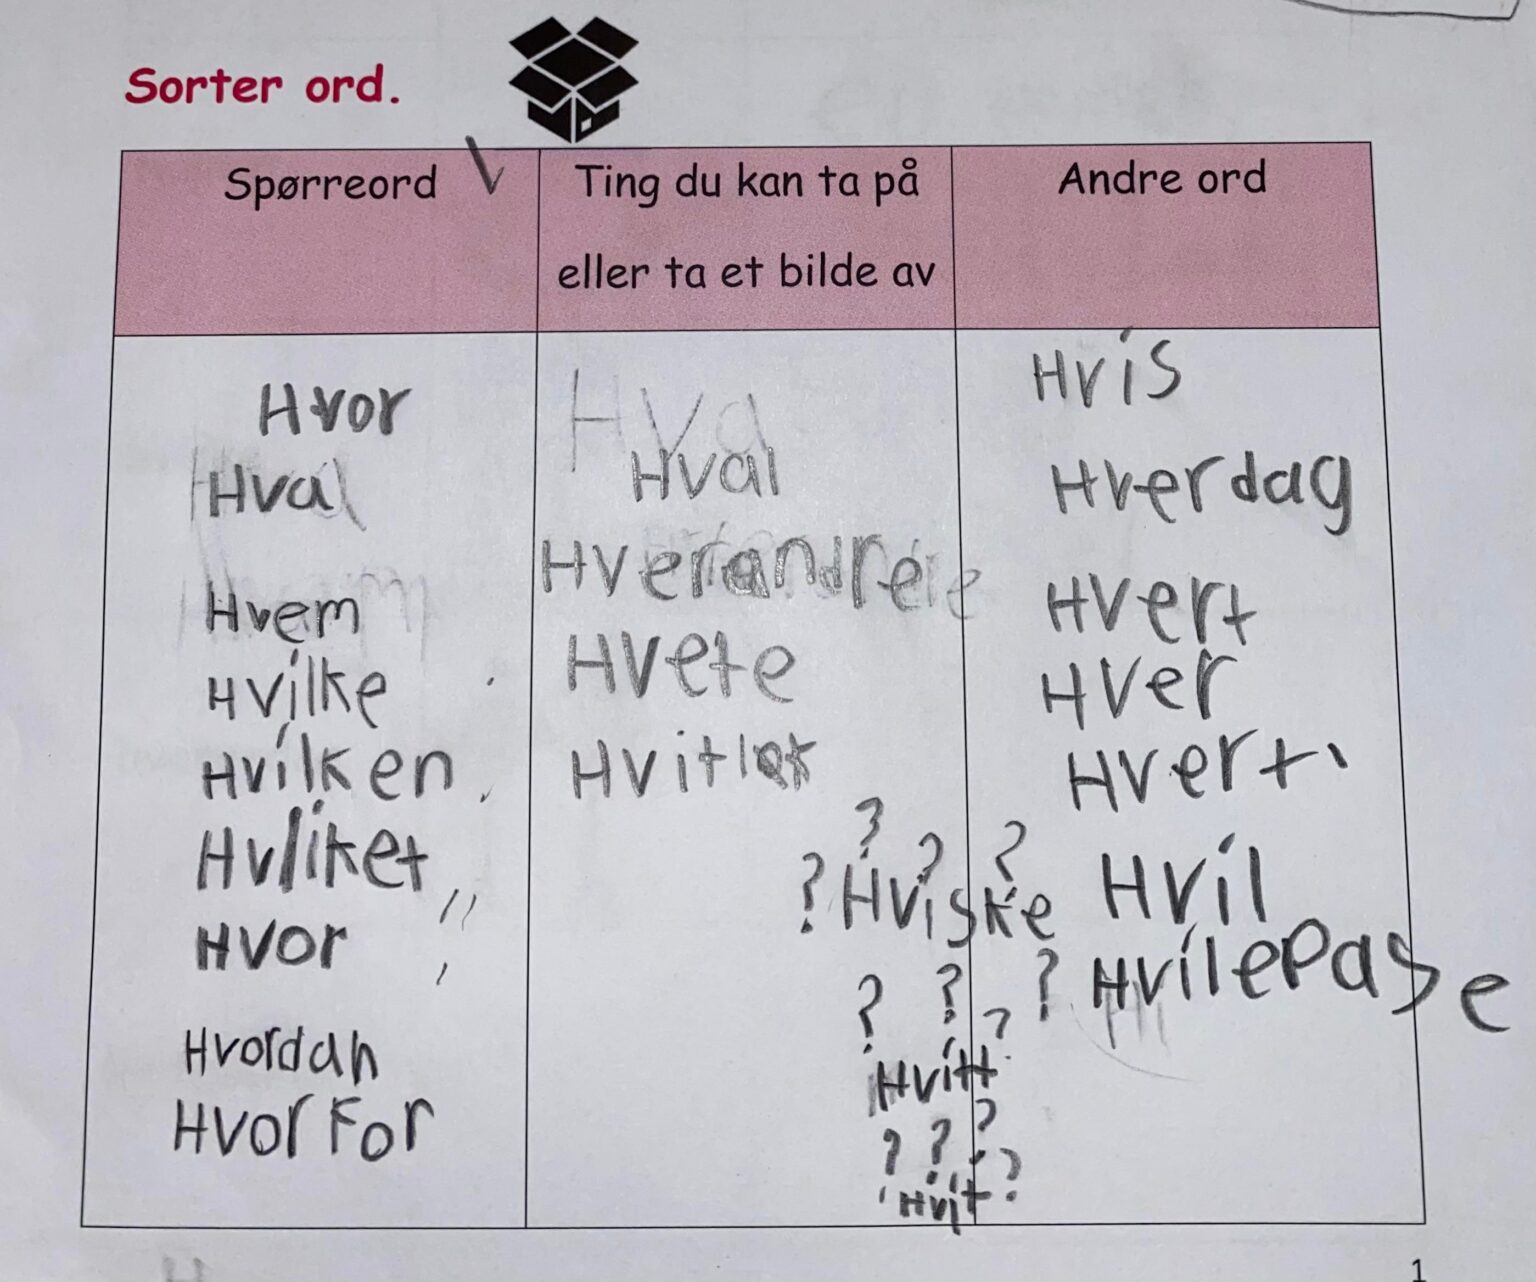 Sorter ord.
Spørreord
Ting du kan ta på
eller ta et bilde av
Andre ord
Hvor
Hva
Hvem
Hvilke
Hvilken
Hvliket
Hvor
Hvordan
Hvorfor
Hva
Hval
Hverandre
Hvete
Hvitløk
? ? ?
? Hviske
? ? ?
?
Hvitt
? ? ?
?
Hvit
Hvis
Hverdag
Hvert
Hver
Hvert
Hvil
Hvilepase
1